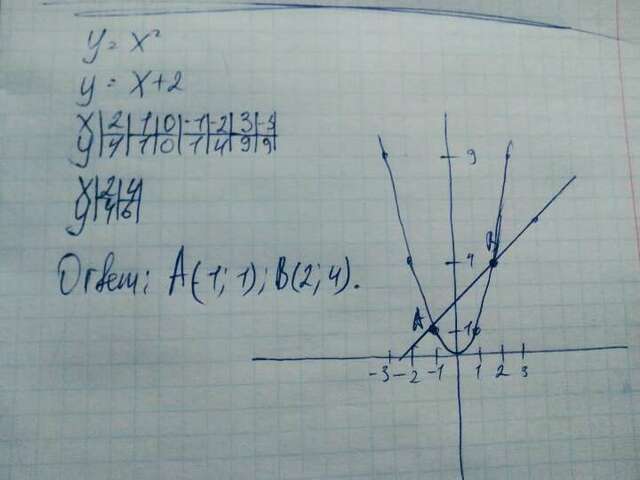 y = x²
y = x+2
x | 2 | 1 | 0 | -1 | -2 | 3 | -3
y | 4 | 1 | 0 | 1 | 4 | 9 | 9
x | 2 | 4 |
y | 4 | 6 |
Ответ: A(-1; 1); B(2; 4).
9
B
4
A
1
-3 -2 -1 1 2 3